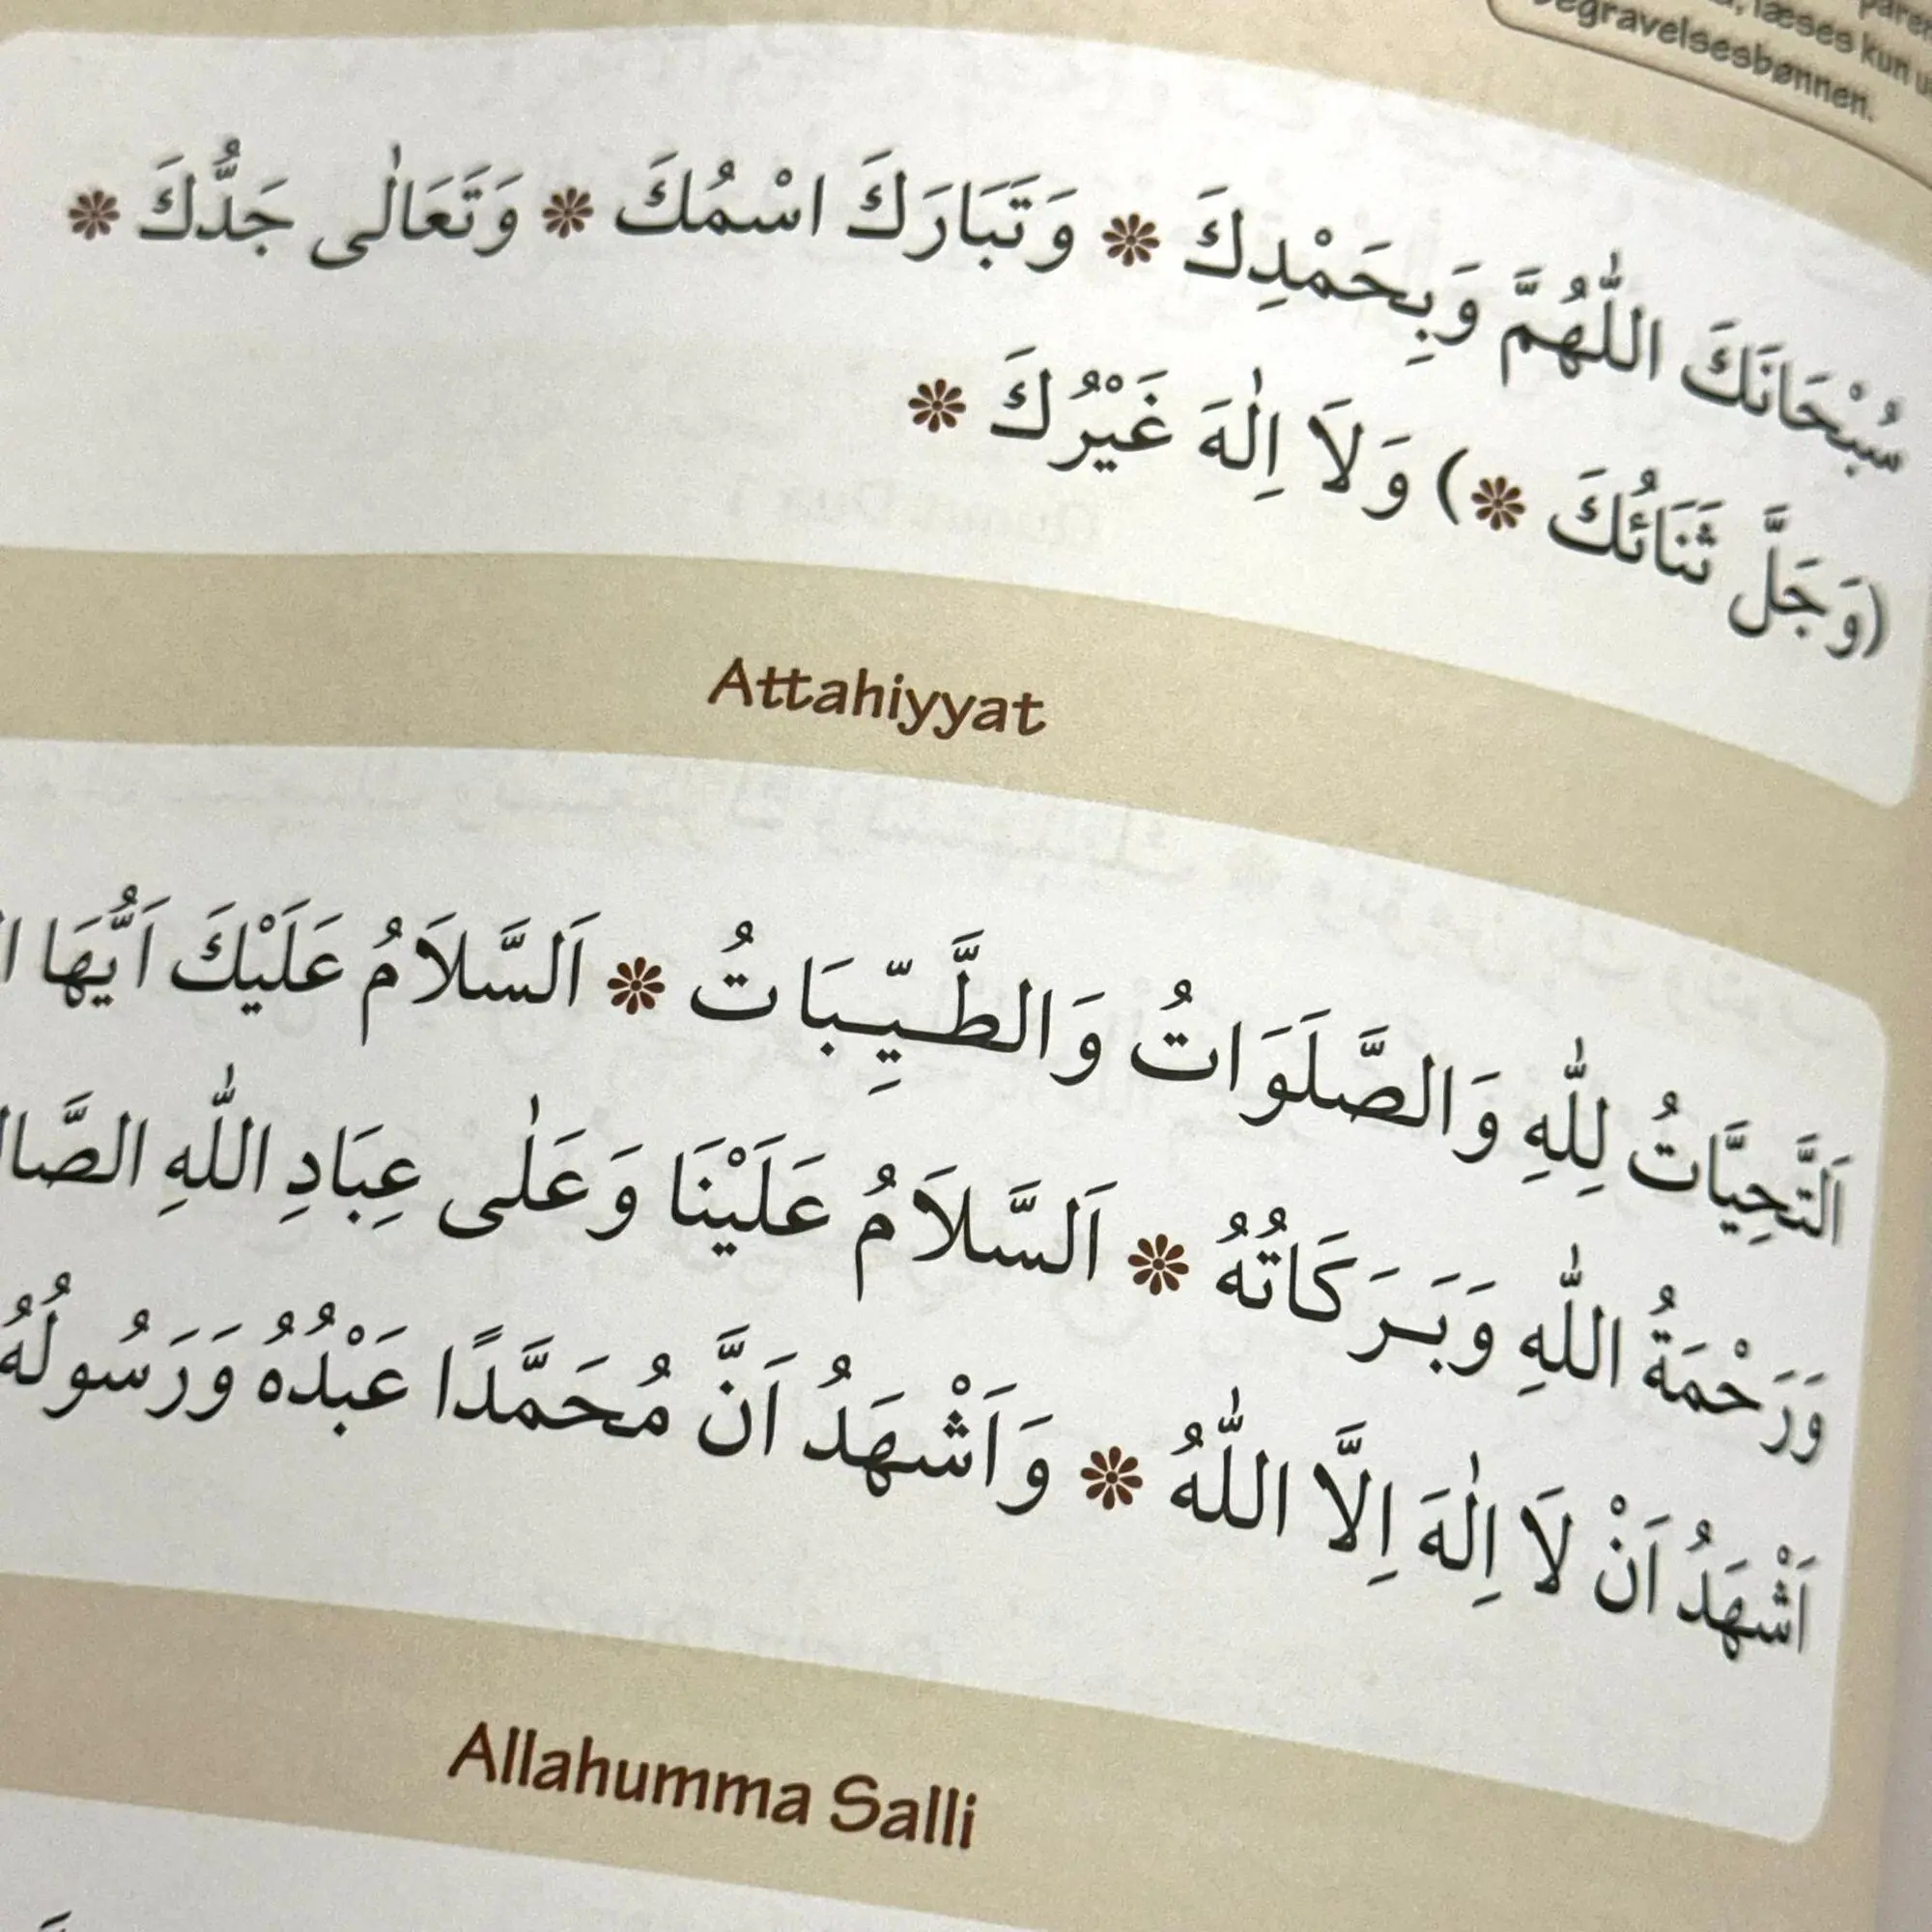 læses kun
begravelsesbønnen.
سُبْحَانَكَ اللّٰهُمَّ وَبِحَمْدِكَ ❋ وَتَبَارَكَ اسْمُكَ ❋ وَتَعَالٰى جَدُّكَ ❋
(وَجَلَّ ثَنَائُكَ ❋) وَلَا اِلٰهَ غَيْرُكَ ❋
Attahiyyat
اَلتَّحِيَّاتُ لِلّٰهِ وَالصَّلَوَاتُ وَالطَّيِّبَاتُ ❋ اَلسَّلَامُ عَلَيْكَ اَيُّهَا
وَرَحْمَةُ اللّٰهِ وَبَرَكَاتُهُ ❋ اَلسَّلَامُ عَلَيْنَا وَعَلٰى عِبَادِ اللّٰهِ
اَشْهَدُ اَنْ لَا اِلٰهَ اِلَّا اللّٰهُ ❋ وَاَشْهَدُ اَنَّ مُحَمَّدًا عَبْدُهُ وَرَسُولُهُ
Allahumma Salli